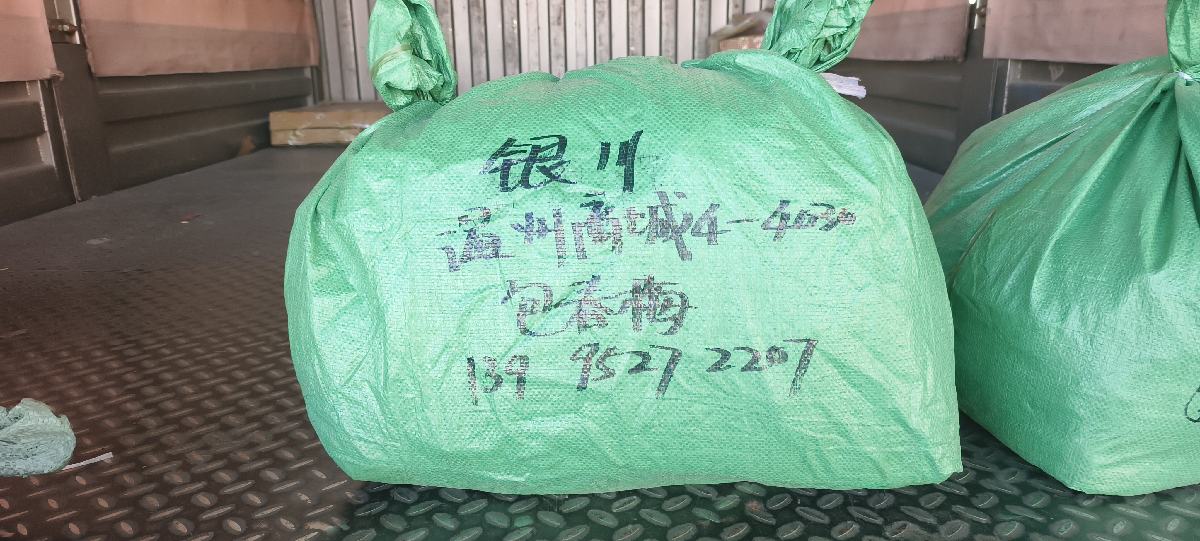 银川
温州商城4-4030
包春梅
139 9527 2207